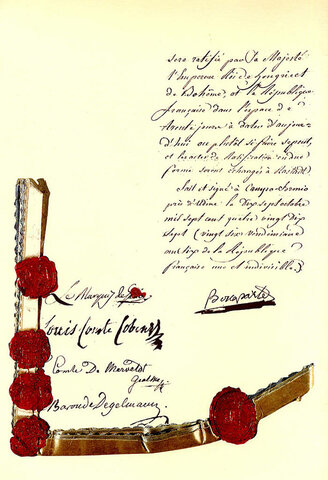 sera ratifié par Sa Majesté
l'Empereur Roi de hongrie et
de Bohême, et la République
française dans l'espace de
trente jours à dater d'aujour-
d'hui ou plutôt si faire se peut,
et les actes de Ratification en due
forme seront échangés à Rastadt.
fait et signé à Campo-formio
près d'Udine le Dix sept octobre
mil sept cent quatre vingt Dix
sept (vingt six vendémiaire
an six de la République
française une et indivisible.)
Le Marquis de Gallo
Bonaparte
Louis Comte Cobenzl
Comte De Merveldt
Gral Maj
Baron de Degelmann